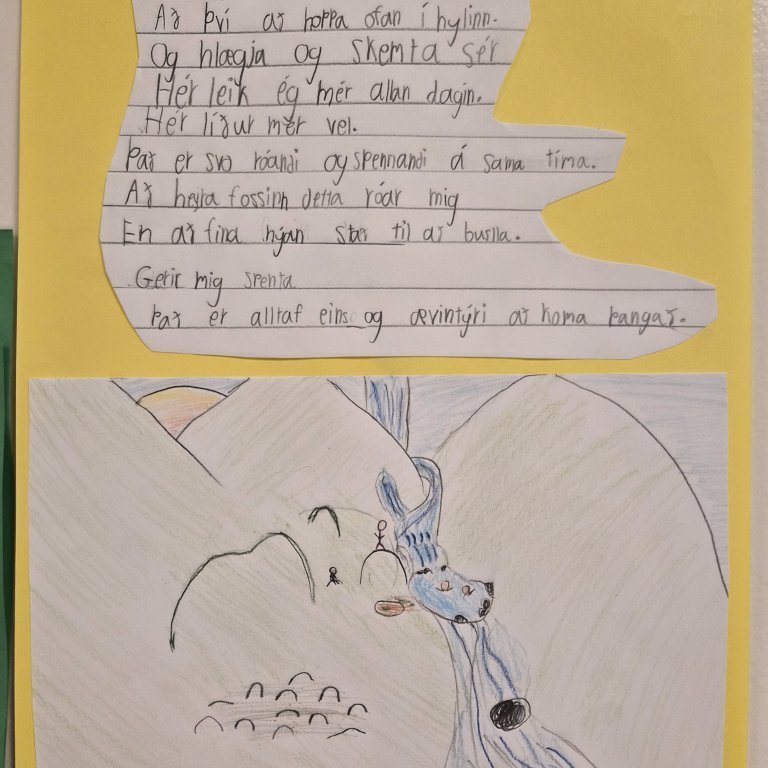 Að því að hoppa ofan í hylinn.
Og hlægja og skemta sér
Hér leik ég mér allan dagin.
Hér líður mér vel.
Það er svo róandi og spennandi á sama tíma.
Að heyra fossinn detta róar mig
En að fina hýan stað til að buslla.
Gerir mig spenta
Það er alltaf eins og ævintýri að koma þangað.